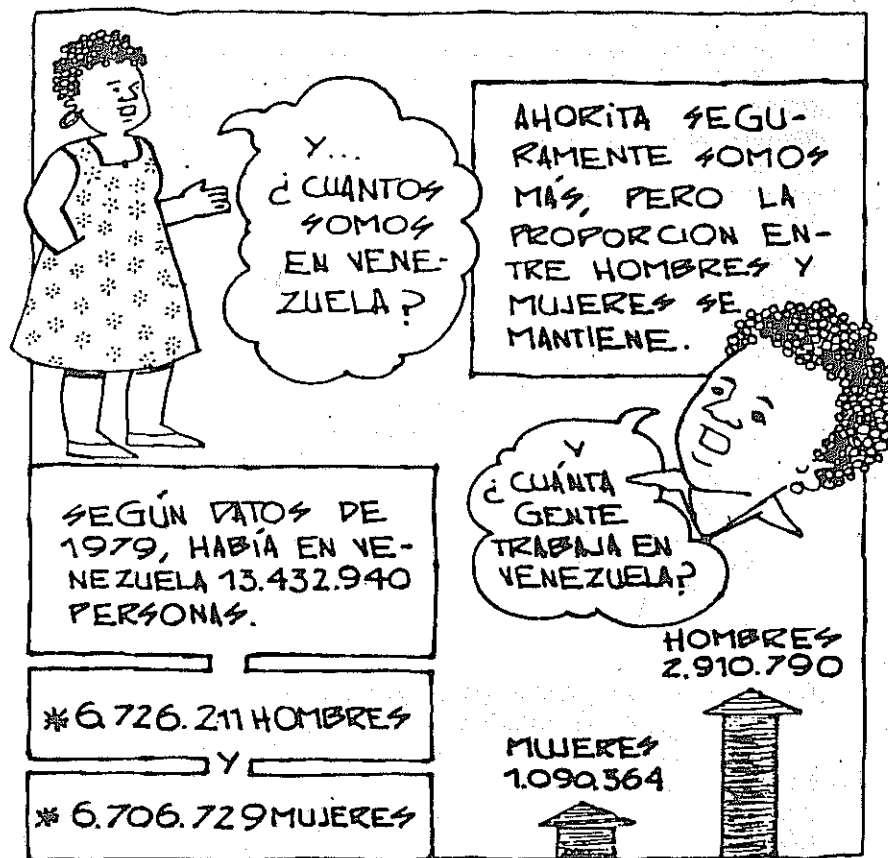 Y...
¿CUANTOS
SOMOS
EN VENE-
ZUELA?
AHORITA SEGU-
RAMENTE SOMOS
MÁS, PERO LA
PROPORCION EN-
TRE HOMBRES Y
MUJERES SE
MANTIENE.
SEGÚN DATOS DE
1979, HABÍA EN VE-
NEZUELA 13.432.940
PERSONAS.
* 6.726.211 HOMBRES
Y
* 6.706.729 MUJERES
Y
¿CUÁNTA
GENTE
TRABAJA EN
VENEZUELA?
HOMBRES
2.910.790
MUJERES
1.090.364